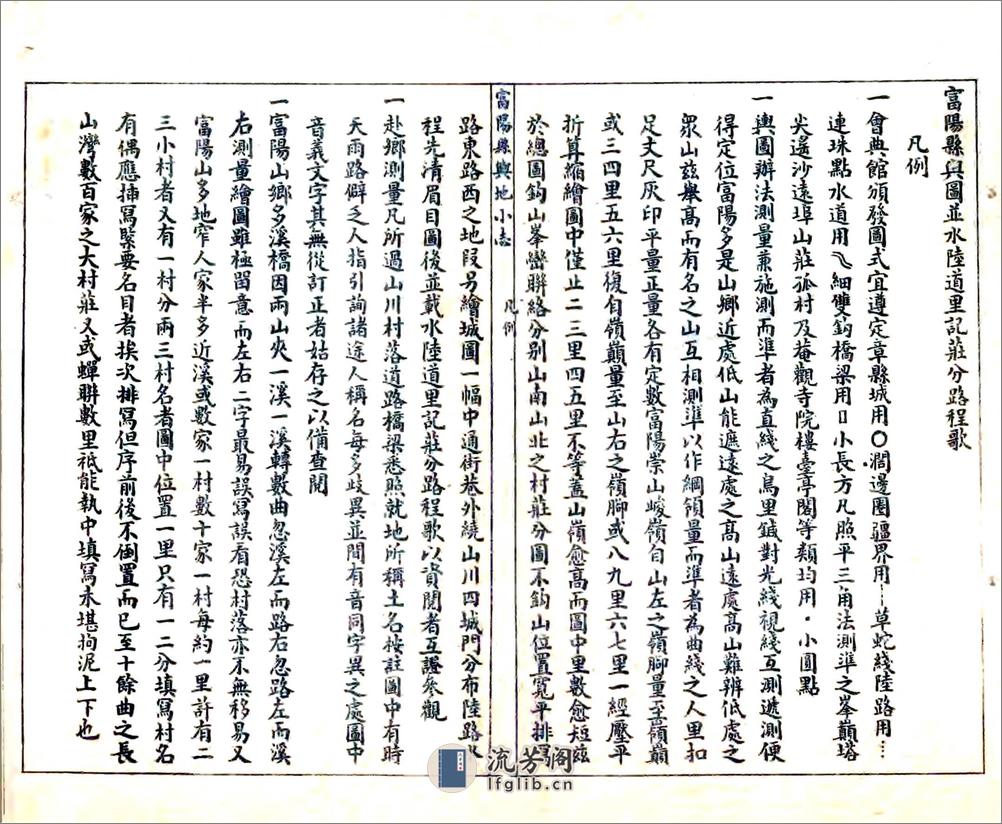 富陽縣輿圖並水陸道里記莊分路程歌
凡例
一會典館頒發圖式宜遵定章縣城用〇濶邊圈疆界用…草蛇綫陸路用…
連珠點水道用〵細雙鈎橋梁用▯小長方凡照平三角法測準之峯巔塔
尖遥沙遠埠山莊孤村及菴觀寺院樓臺亭閣等類均用・小圓點
一輿圖辦法測量兼施測而準者為直綫之鳥里鍼對光綫視綫互測遞測便
得定位富陽多是山鄉近處低山能遮遠處之高山遠處高山難辨低處之
眾山兹舉高而有名之山互相測準以作綱領量而準者為曲綫之人里扣
足丈尺灰印平量正量各有定數富陽崇山峻嶺自山左之嶺腳量至嶺巔
或三四里五六里復自嶺巔量至山右之嶺腳或八九里六七里一經壓平
折算縮繪圖中僅止二三里四五里不等蓋山嶺愈高而圖中里數愈短兹
於總圖鈎山峯巒聯絡分别山南山北之村莊分圖不鈎山位置寬平排寫
富陽縣輿地小志 凡例
路東路西之地段另繪城圖一幅中通街巷外繞山川四城門分布陸路水
程先清眉目圖後並載水陸道里記莊分路程歌以資閱者互證参觀
一赴鄉測量凡所過山川村落道路橋梁悉照就地所稱土名按註圖中有時
天雨路僻乏人指引詢諸途人稱名每多歧異並間有音同字異之處圖中
音義文字其無從訂正者姑存之以備查閱
一富陽山鄉多溪橋因兩山夾一溪一溪轉數曲忽溪左而路右忽路左而溪
右測量繪圖雖極留意而左右二字最易誤寫誤看恐村落亦不無移易又
富陽山多地窄人家半多近溪或數家一村數十家一村每約一里許有二
三小村者又有一村分兩三村名者圖中位置一里只有一二分填寫村名
有偶應揷寫緊要名目者挨次排寫但序前後不倒置而已至十餘曲之長
山灣數百家之大村莊又或蟬聯數里祗能執中填寫未堪拘泥上下也
流芳阁
lfglib.cn